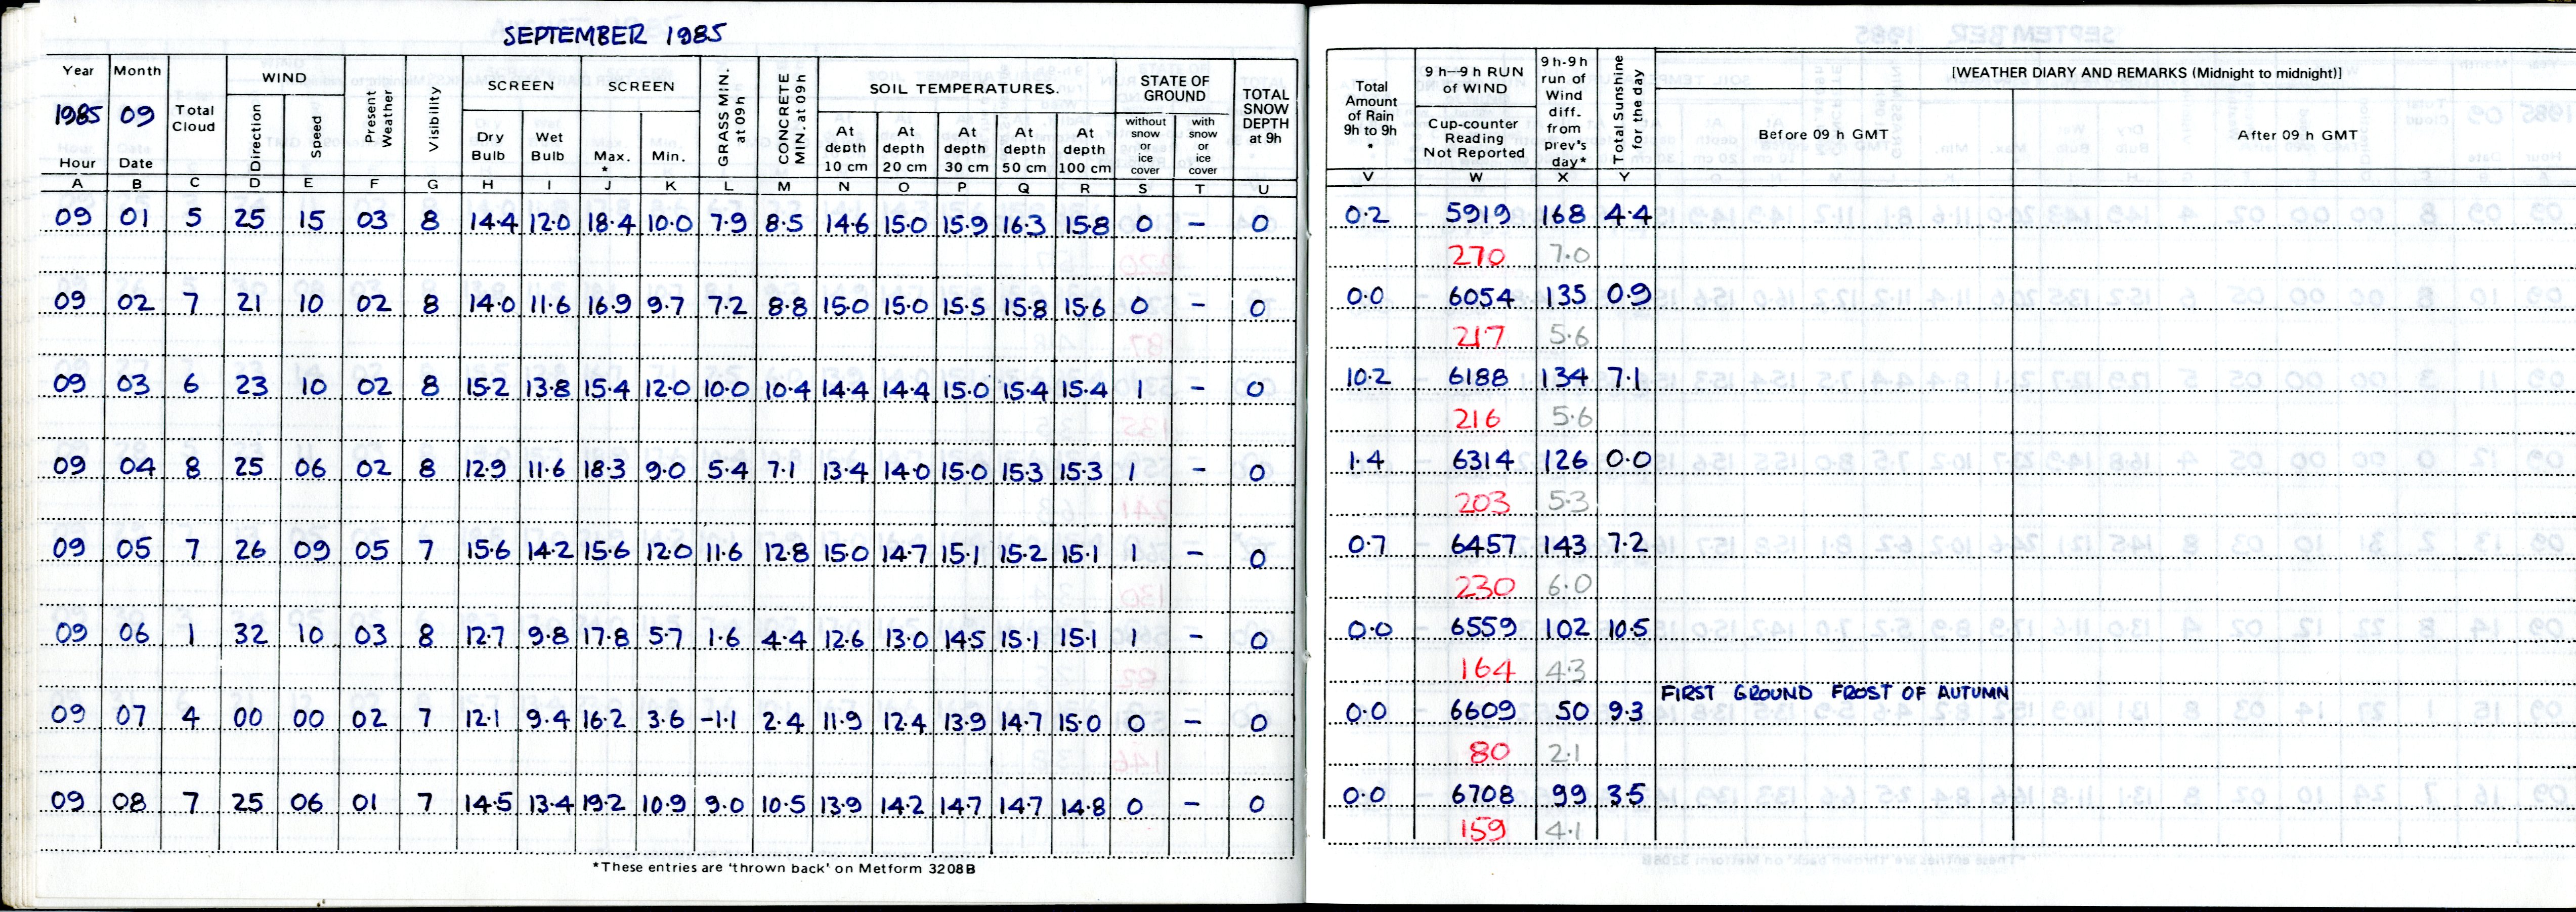 SEPTEMBER 1985
Year Month Total Cloud WIND Present Weather Visibility SCREEN SCREEN GRASS MIN. at 09h CONCRETE MIN. at 09h SOIL TEMPERATURES. STATE OF GROUND TOTAL SNOW DEPTH at 9h
1985 09 Direction Speed
Hour Date Dry Bulb Wet Bulb Max. * Min. At depth 10 cm At depth 20 cm At depth 30 cm At depth 50 cm At depth 100 cm without snow or ice cover with snow or ice cover
A B C D E F G H I J K L M N O P Q R S T U
09 01 5 25 15 03 8 14.4 12.0 18.4 10.0 7.9 8.5 14.6 15.0 15.9 16.3 15.8 0 – 0
09 02 7 21 10 02 8 14.0 11.6 16.9 9.7 7.2 8.8 15.0 15.0 15.5 15.8 15.6 0 – 0
09 03 6 23 10 02 8 15.2 13.8 15.4 12.0 10.0 10.4 14.4 14.4 15.0 15.4 15.4 1 – 0
09 04 8 25 06 02 8 12.9 11.6 18.3 9.0 5.4 7.1 13.4 14.0 15.0 15.3 15.3 1 – 0
09 05 7 26 09 05 7 15.6 14.2 15.6 12.0 11.6 12.8 15.0 14.7 15.1 15.2 15.1 1 – 0
09 06 1 32 10 03 8 12.7 9.8 17.8 5.7 1.6 4.4 12.6 13.0 14.5 15.1 15.1 1 – 0
09 07 4 00 00 02 7 12.1 9.4 16.2 3.6 -1.1 2.4 11.9 12.4 13.9 14.7 15.0 0 – 0
09 08 7 25 06 01 7 14.5 13.4 19.2 10.9 9.0 10.5 13.9 14.2 14.7 14.7 14.8 0 – 0
*These entries are 'thrown back' on Metform 3208B
Total Amount of Rain 9h to 9h * 9 h–9 h RUN of WIND Cup-counter Reading Not Reported 9 h-9 h run of Wind diff. from prev's day* Total Sunshine for the day [WEATHER DIARY AND REMARKS (Midnight to midnight)]
Before 09 h GMT After 09 h GMT
V W X Y
0.2 5919 168 4.4
270 7.0
0.0 6054 135 0.9
217 5.6
10.2 6188 134 7.1
216 5.6
1.4 6314 126 0.0
203 5.3
0.7 6457 143 7.2
230 6.0
0.0 6559 102 10.5
164 4.3
FIRST GROUND FROST OF AUTUMN
0.0 6609 50 9.3
80 2.1
0.0 6708 99 3.5
159 4.1